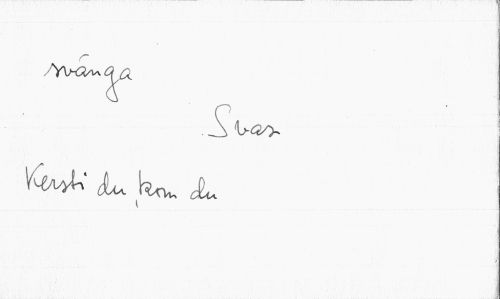 svänga
Svas
Kersti du, kom du